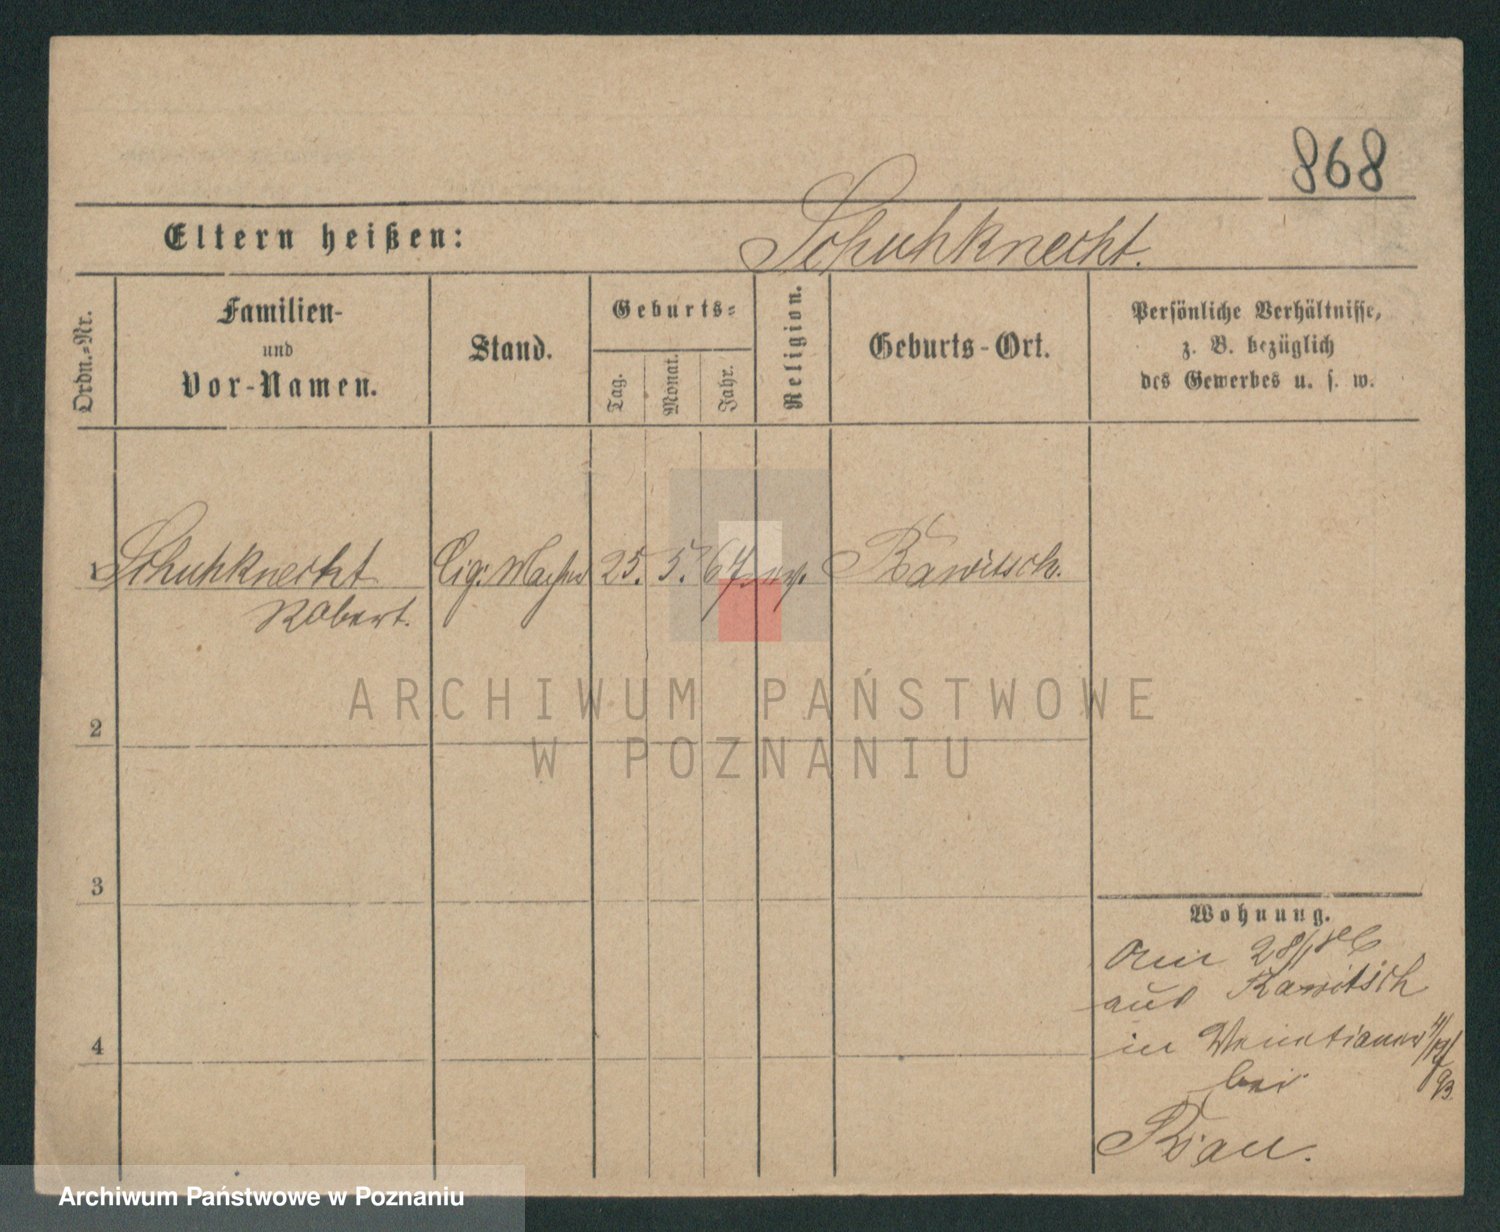 868
Eltern heißen: Schuhknecht.
Ordn.-Nr.
Familien-
und
Vor-Namen.
Stand.
Geburts-
Tag.
Monat.
Jahr.
Religion.
Geburts-Ort.
Persönliche Verhältnisse,
z. B. bezüglich
des Gewerbes u. s. w.
1 Schuhknecht Cig: Macher 25. 5. 64. Rawitsch.
Robert.
ARCHIWUM PAŃSTWOWE
W POZNANIU
2
3
4
Wohnung.
aus Rawitsch
in Venetianer
bei
Archiwum Państwowe w Poznaniu